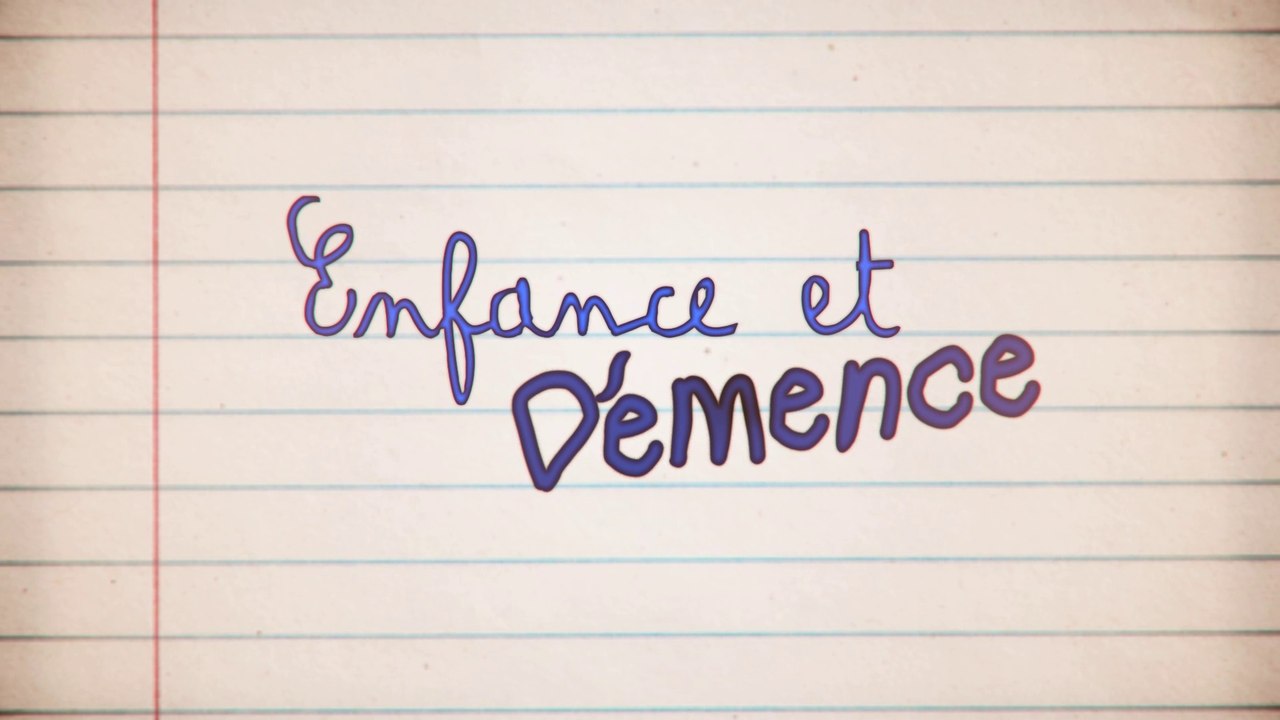 Enfance et
Démence